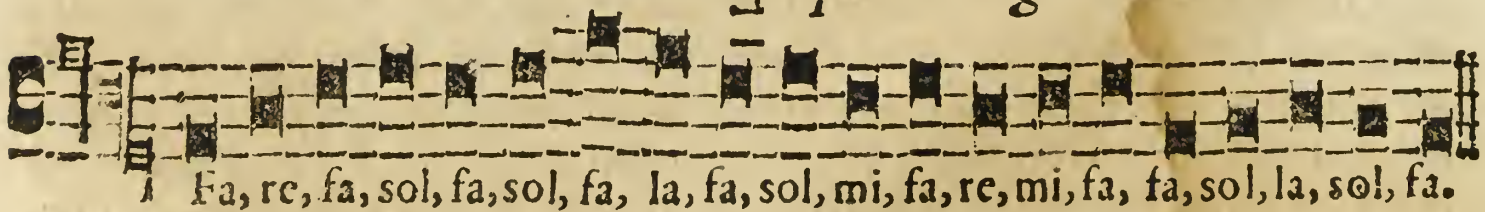 Fa, re, fa, sol, fa, sol, fa, la, fa, sol, mi, fa, re, mi, fa, fa, sol, la, sol, fa.